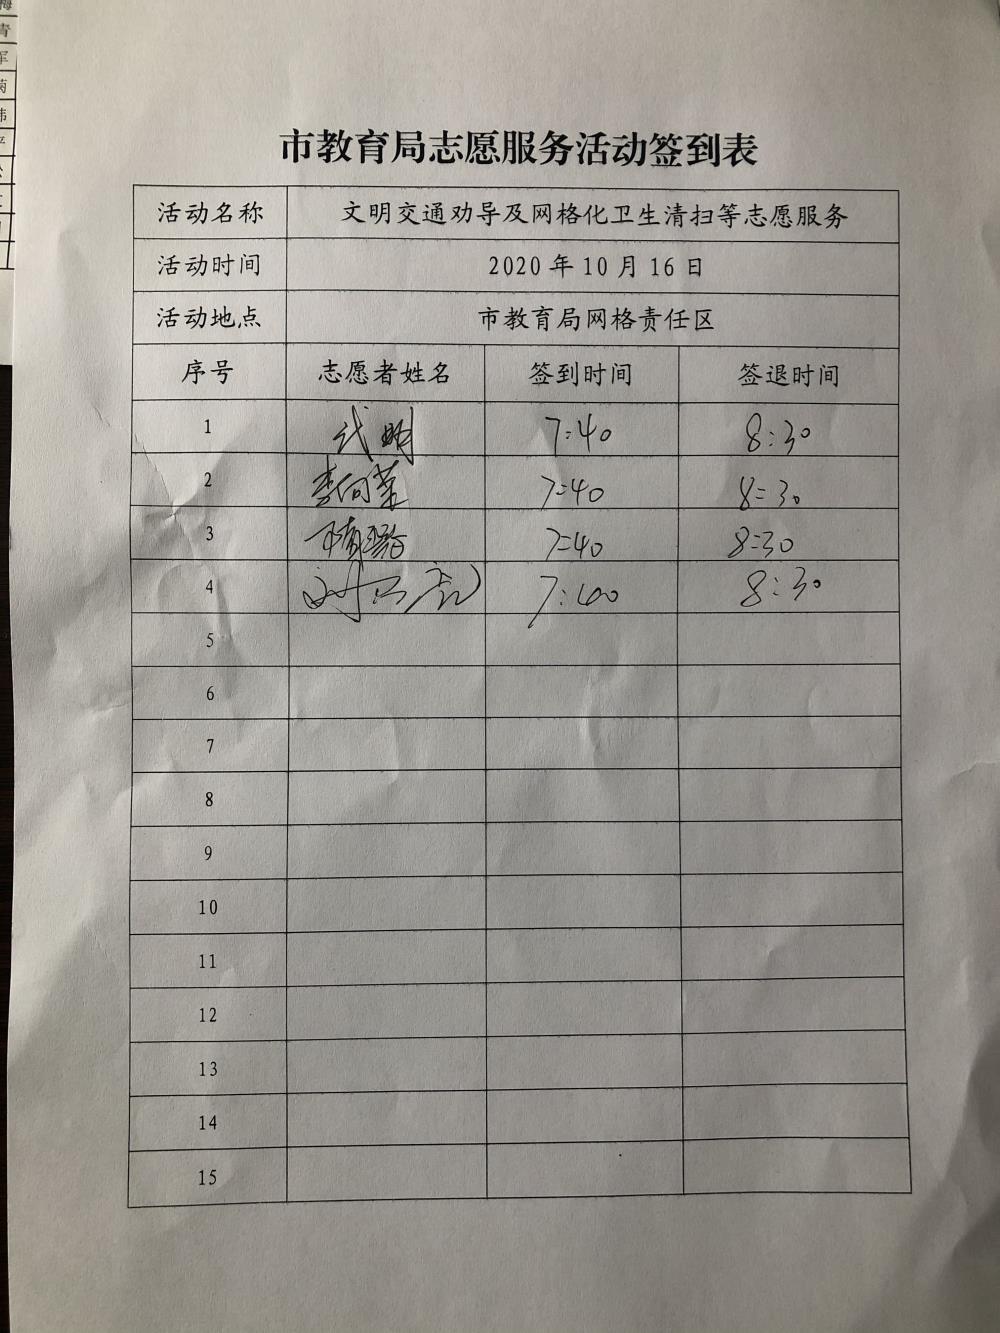 梅
青
军
菊
伟
市教育局志愿服务活动签到表
活动名称 文明交通劝导及网格化卫生清扫等志愿服务
活动时间 2020年10月16日
活动地点 市教育局网格责任区
序号 志愿者姓名 签到时间 签退时间
1 代明 7:40 8:30
2 李向荣 7:40 8:30
3 7:40 8:30
4 7:40 8:30
5
6
7
8
9
10
11
12
13
14
15